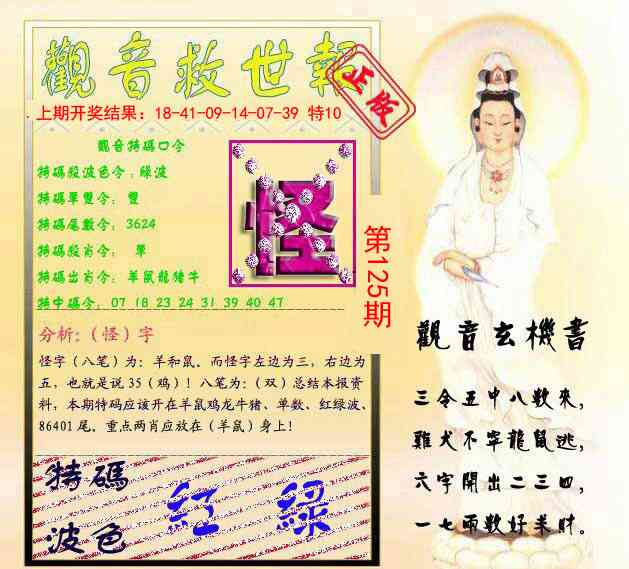 觀音救世報
正版
上期开奖结果：18-41-09-14-07-39 特10
觀音特碼口令
特碼殺波色令：綠波
特碼單雙令： 雙
特碼尾數令：3624
特碼殺肖令： 單
特碼出肖令：羊鼠龍豬牛
特中碼令：07 18 23 24 31 39 40 47
怪
第125期
分析：（怪）字
怪字（八笔）为：羊和鼠。而怪字左边为三，右边为
五，也就是说 35（鸡）！八笔为：（双）总结本报资
料，本期特码应该开在羊鼠鸡龙牛猪、单数、红绿波、
86401 尾。重点两肖应放在（羊鼠）身上！
特碼
波色
紅 綠
觀音玄機書
三令五中八數來，
雞犬不寧龍鼠逃，
六字開出二三四，
一七兩數好羊財。